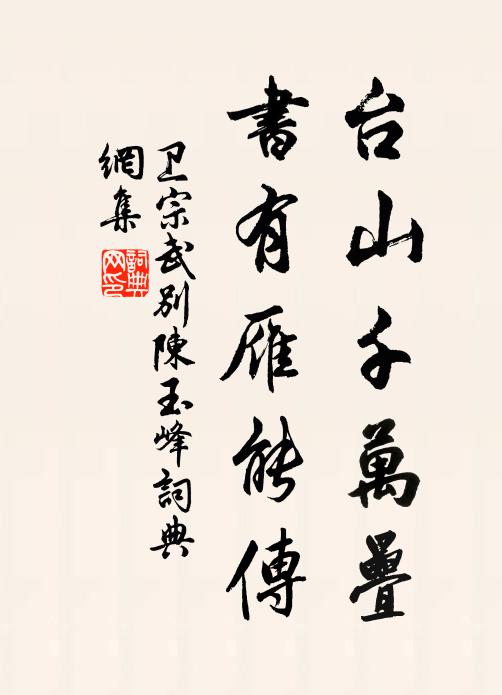 台山千萬疊
書有雁能傳
卫宗武別陳玉峰詞典
網集
詞典網印